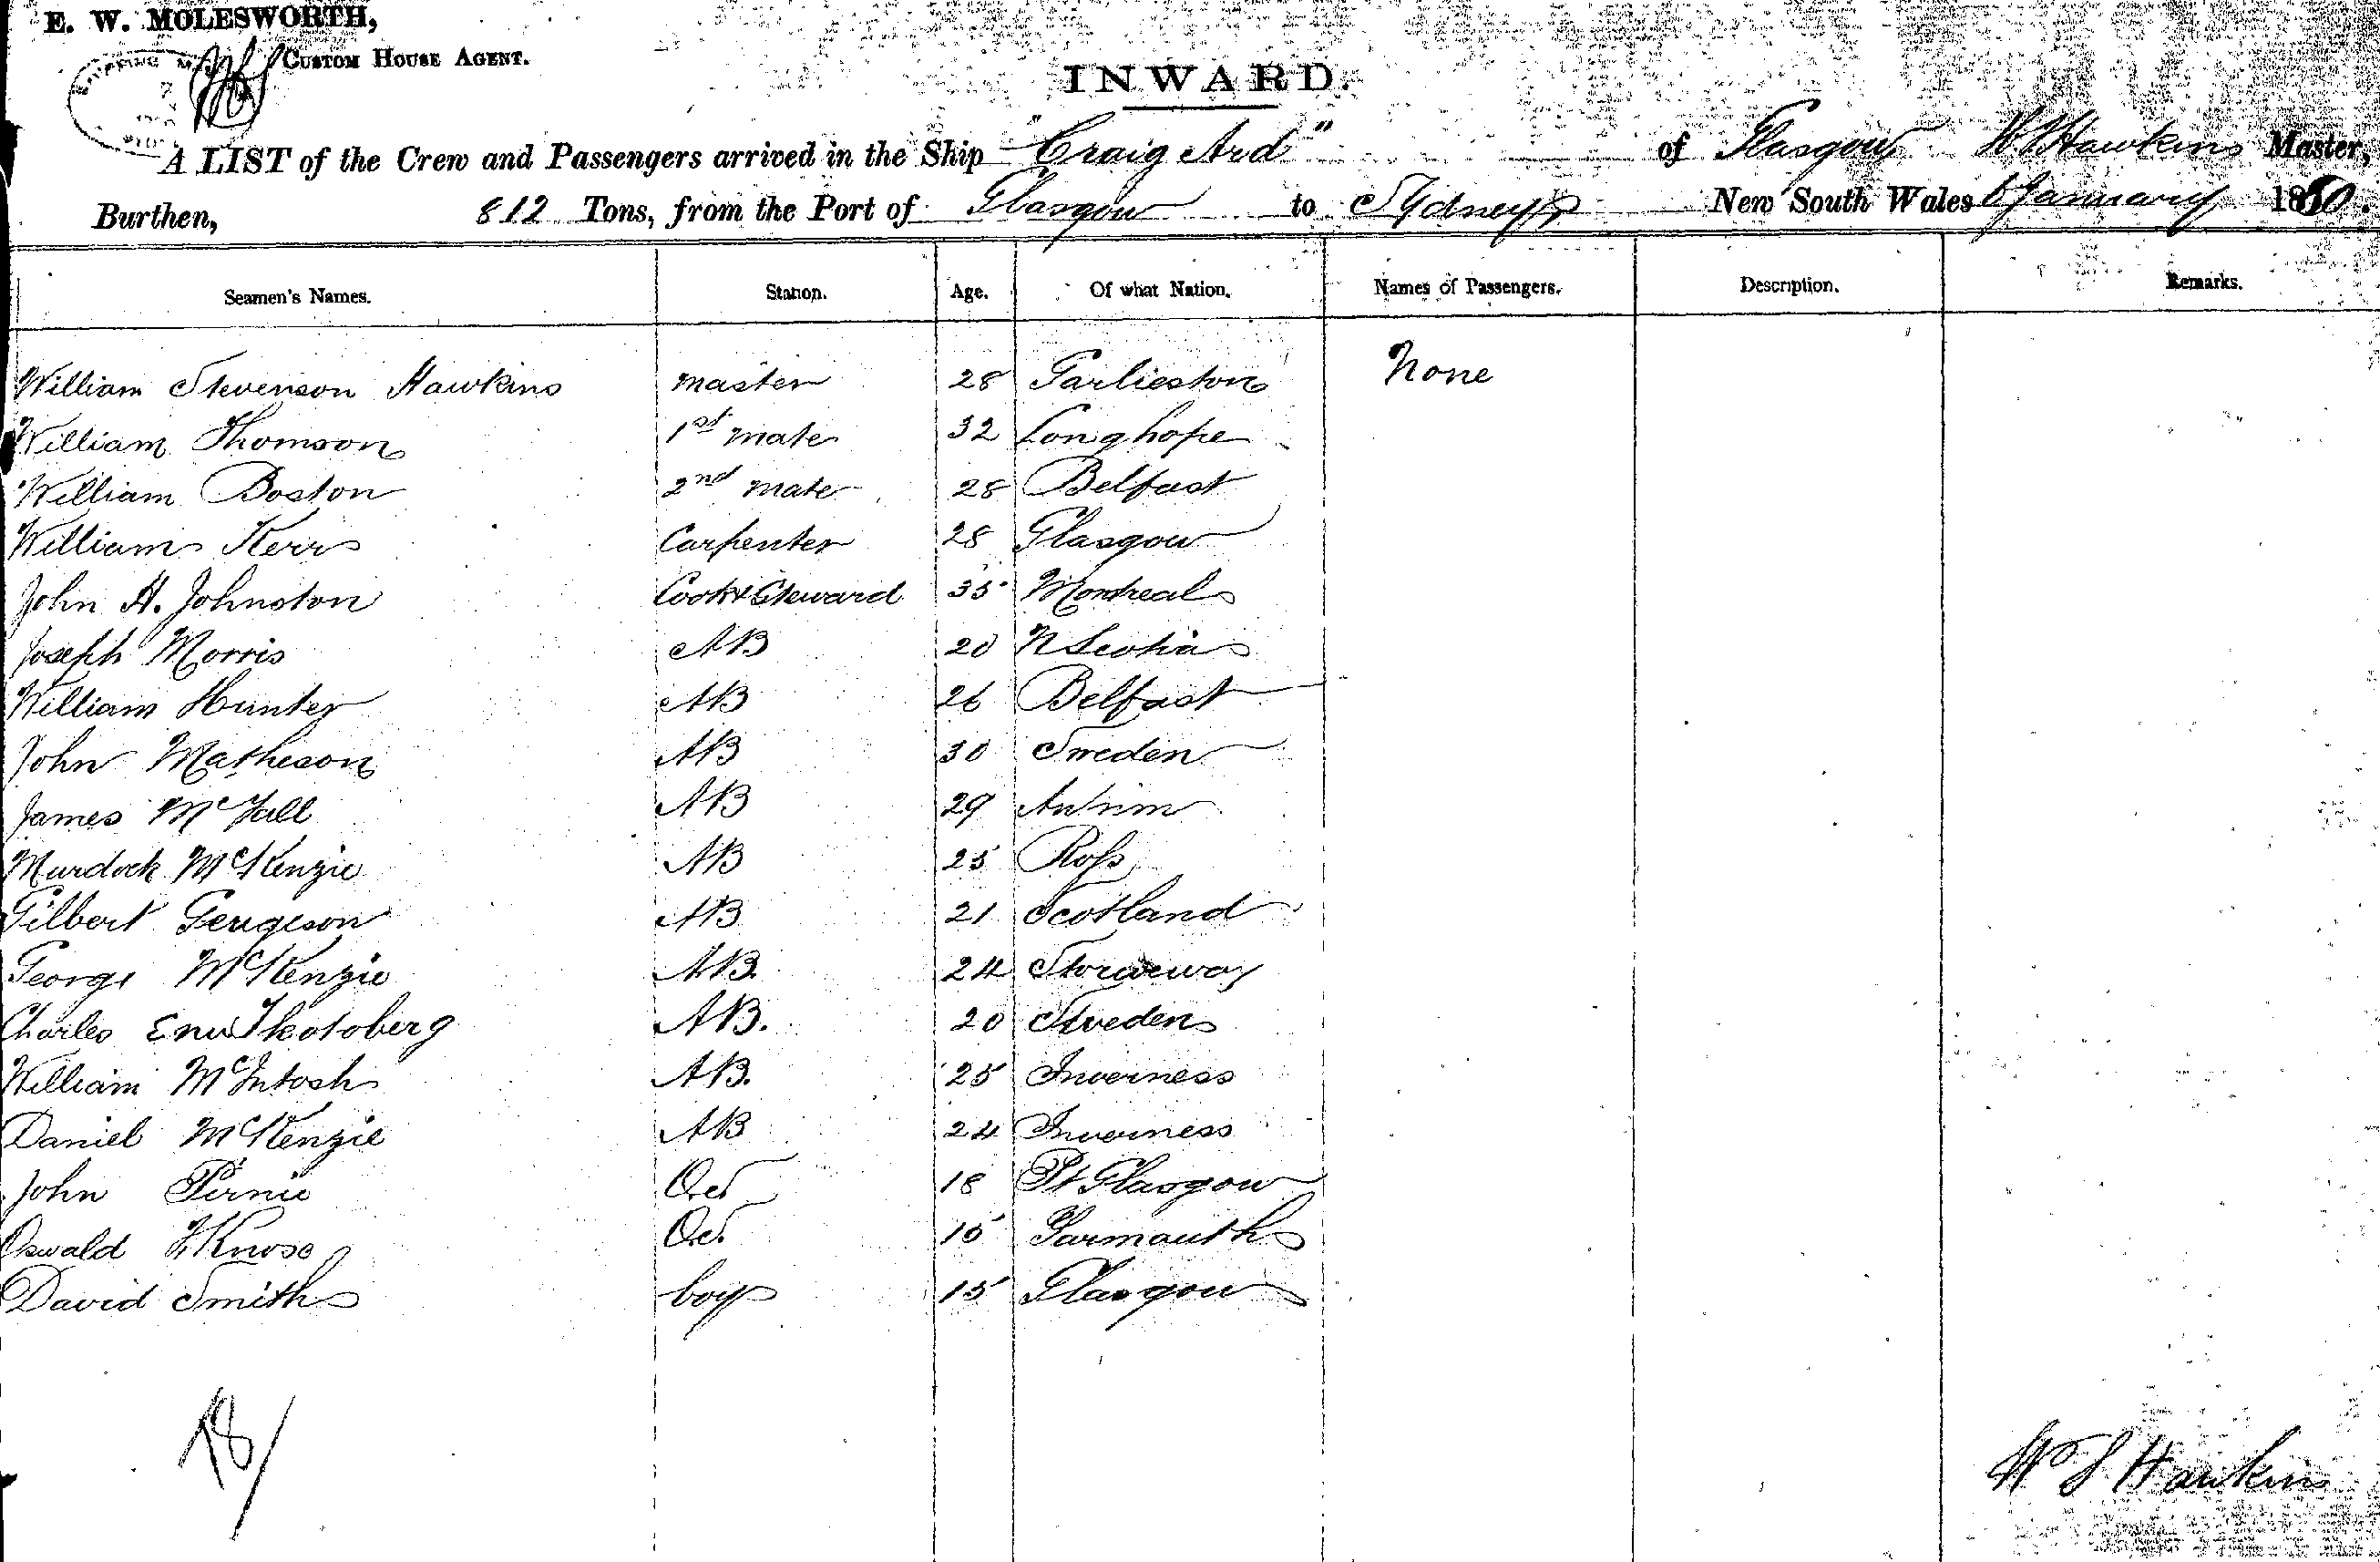 E. W. MOLESWORTH,
CUSTOM HOUSE AGENT.
INWARD.
A LIST of the Crew and Passengers arrived in the Ship "Craig Ard" of Glasgow W S Hawkins Master,
Burthen, 812 Tons, from the Port of Glasgow to Sydney New South Wales 6 January 1880.
Seamen's Names. Station. Age. Of what Nation. Names of Passengers. Description. Remarks.
William Stevenson Hawkins master 28 Garlieston None
William Thomson 1st mate 32 Longhope
William Boston 2nd mate 28 Belfast
William Kerr Carpenter 28 Glasgow
John H. Johnston Cook & Steward 35 Montreal
Joseph Morris AB 20 N Scotia
William Hunter AB 26 Belfast
John Matheson AB 30 Sweden
James McFall AB 29 Antrim
Murdock McKenzie AB 25 Ross
Gilbert Fergeson AB 21 Scotland
George McKenzie AB. 24 Stornoway
Charles AB. 20 Sweden
William McIntosh AB. 25 Inverness
Daniel McKenzie AB 24 Inverness
John Pirnie Ord 18 Pt Glasgow
Oswald Ord 15 Yarmouth
David Smith boy 15 Glasgow
18/
W S Hawkins